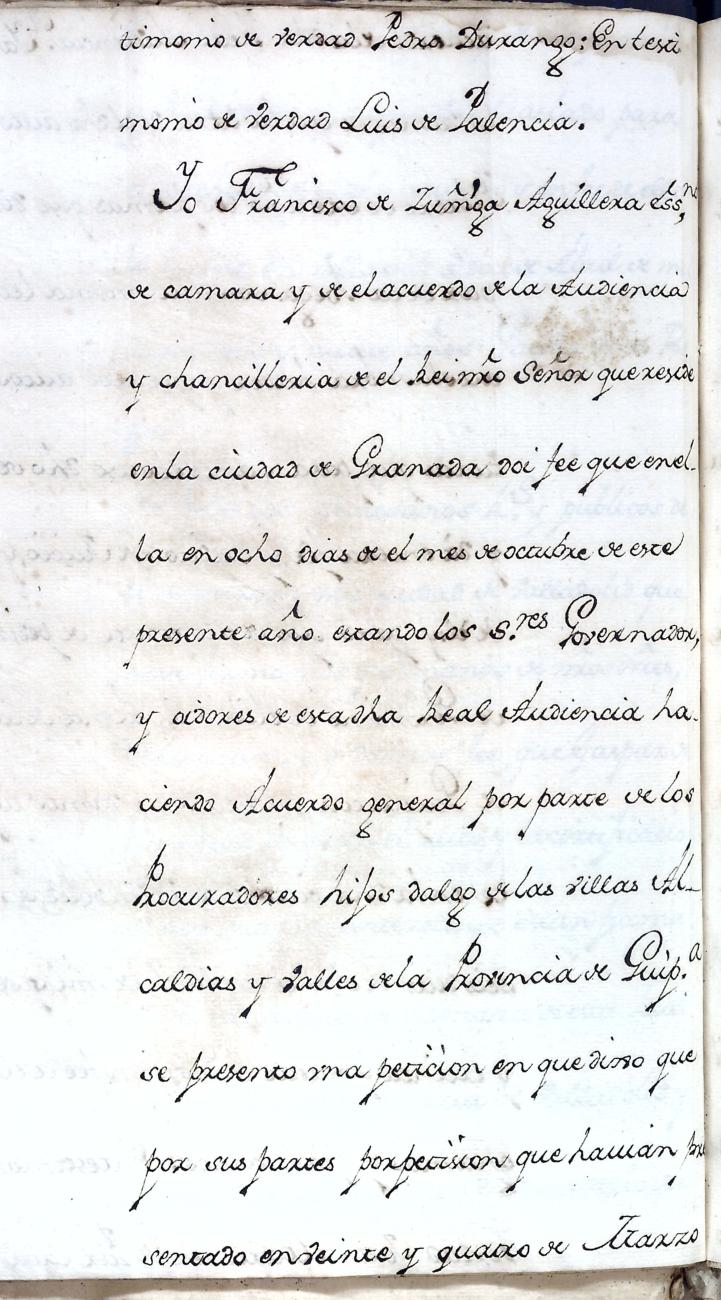 timonio de verdad Pedro Durango: En testi
monio de verdad Luis de Palencia.
Yo Francisco de Zuñiga Aguillera ess.no
de camara y de el acuerdo de la Audiencia
y chancilleria de el Rei nro Señor que reside
en la ciudad de Granada doi fee que en el-
la en ocho dias de el mes de octubre de este
presente año estando los s.res Governador,
y oidores de esta dha Real Audiencia ha-
ciendo Acuerdo general por parte de los
Procuradores hijos dalgo de las villas Al-
caldias y valles de la Provincia de Guip.a
se presento vna peticion en que dixo que
por sus partes por peticion que hauian pre
sentado en veinte y quatro de Marzo